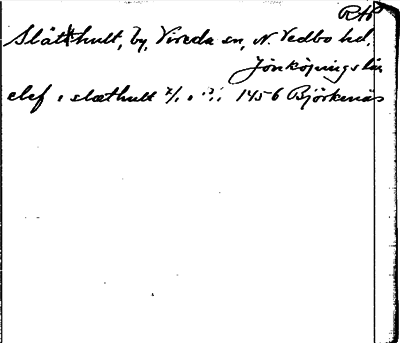 RAP
Slätthult, by, Vireda sn, N. Vedbo hd,
Jönköpings län
elef i slæthult 1456 Björkenäs